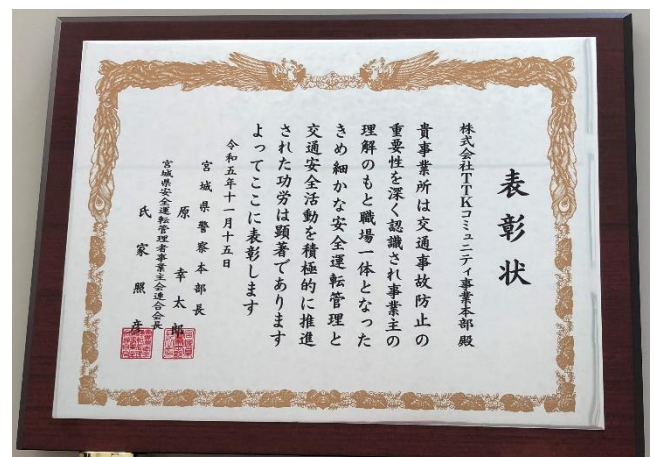 表彰状
株式会社TTKコミュニティ事業本部殿
貴事業所は交通事故防止の
重要性を深く認識され事業主の
理解のもと職場一体となった
きめ細かな安全運転管理と
交通安全活動を積極的に推進
された功労は顕著であります
よってここに表彰します
令和五年十一月十五日
宮城県警察本部長
原幸太郎
宮城県安全運転管理者事業主会連合会長
氏家照彦